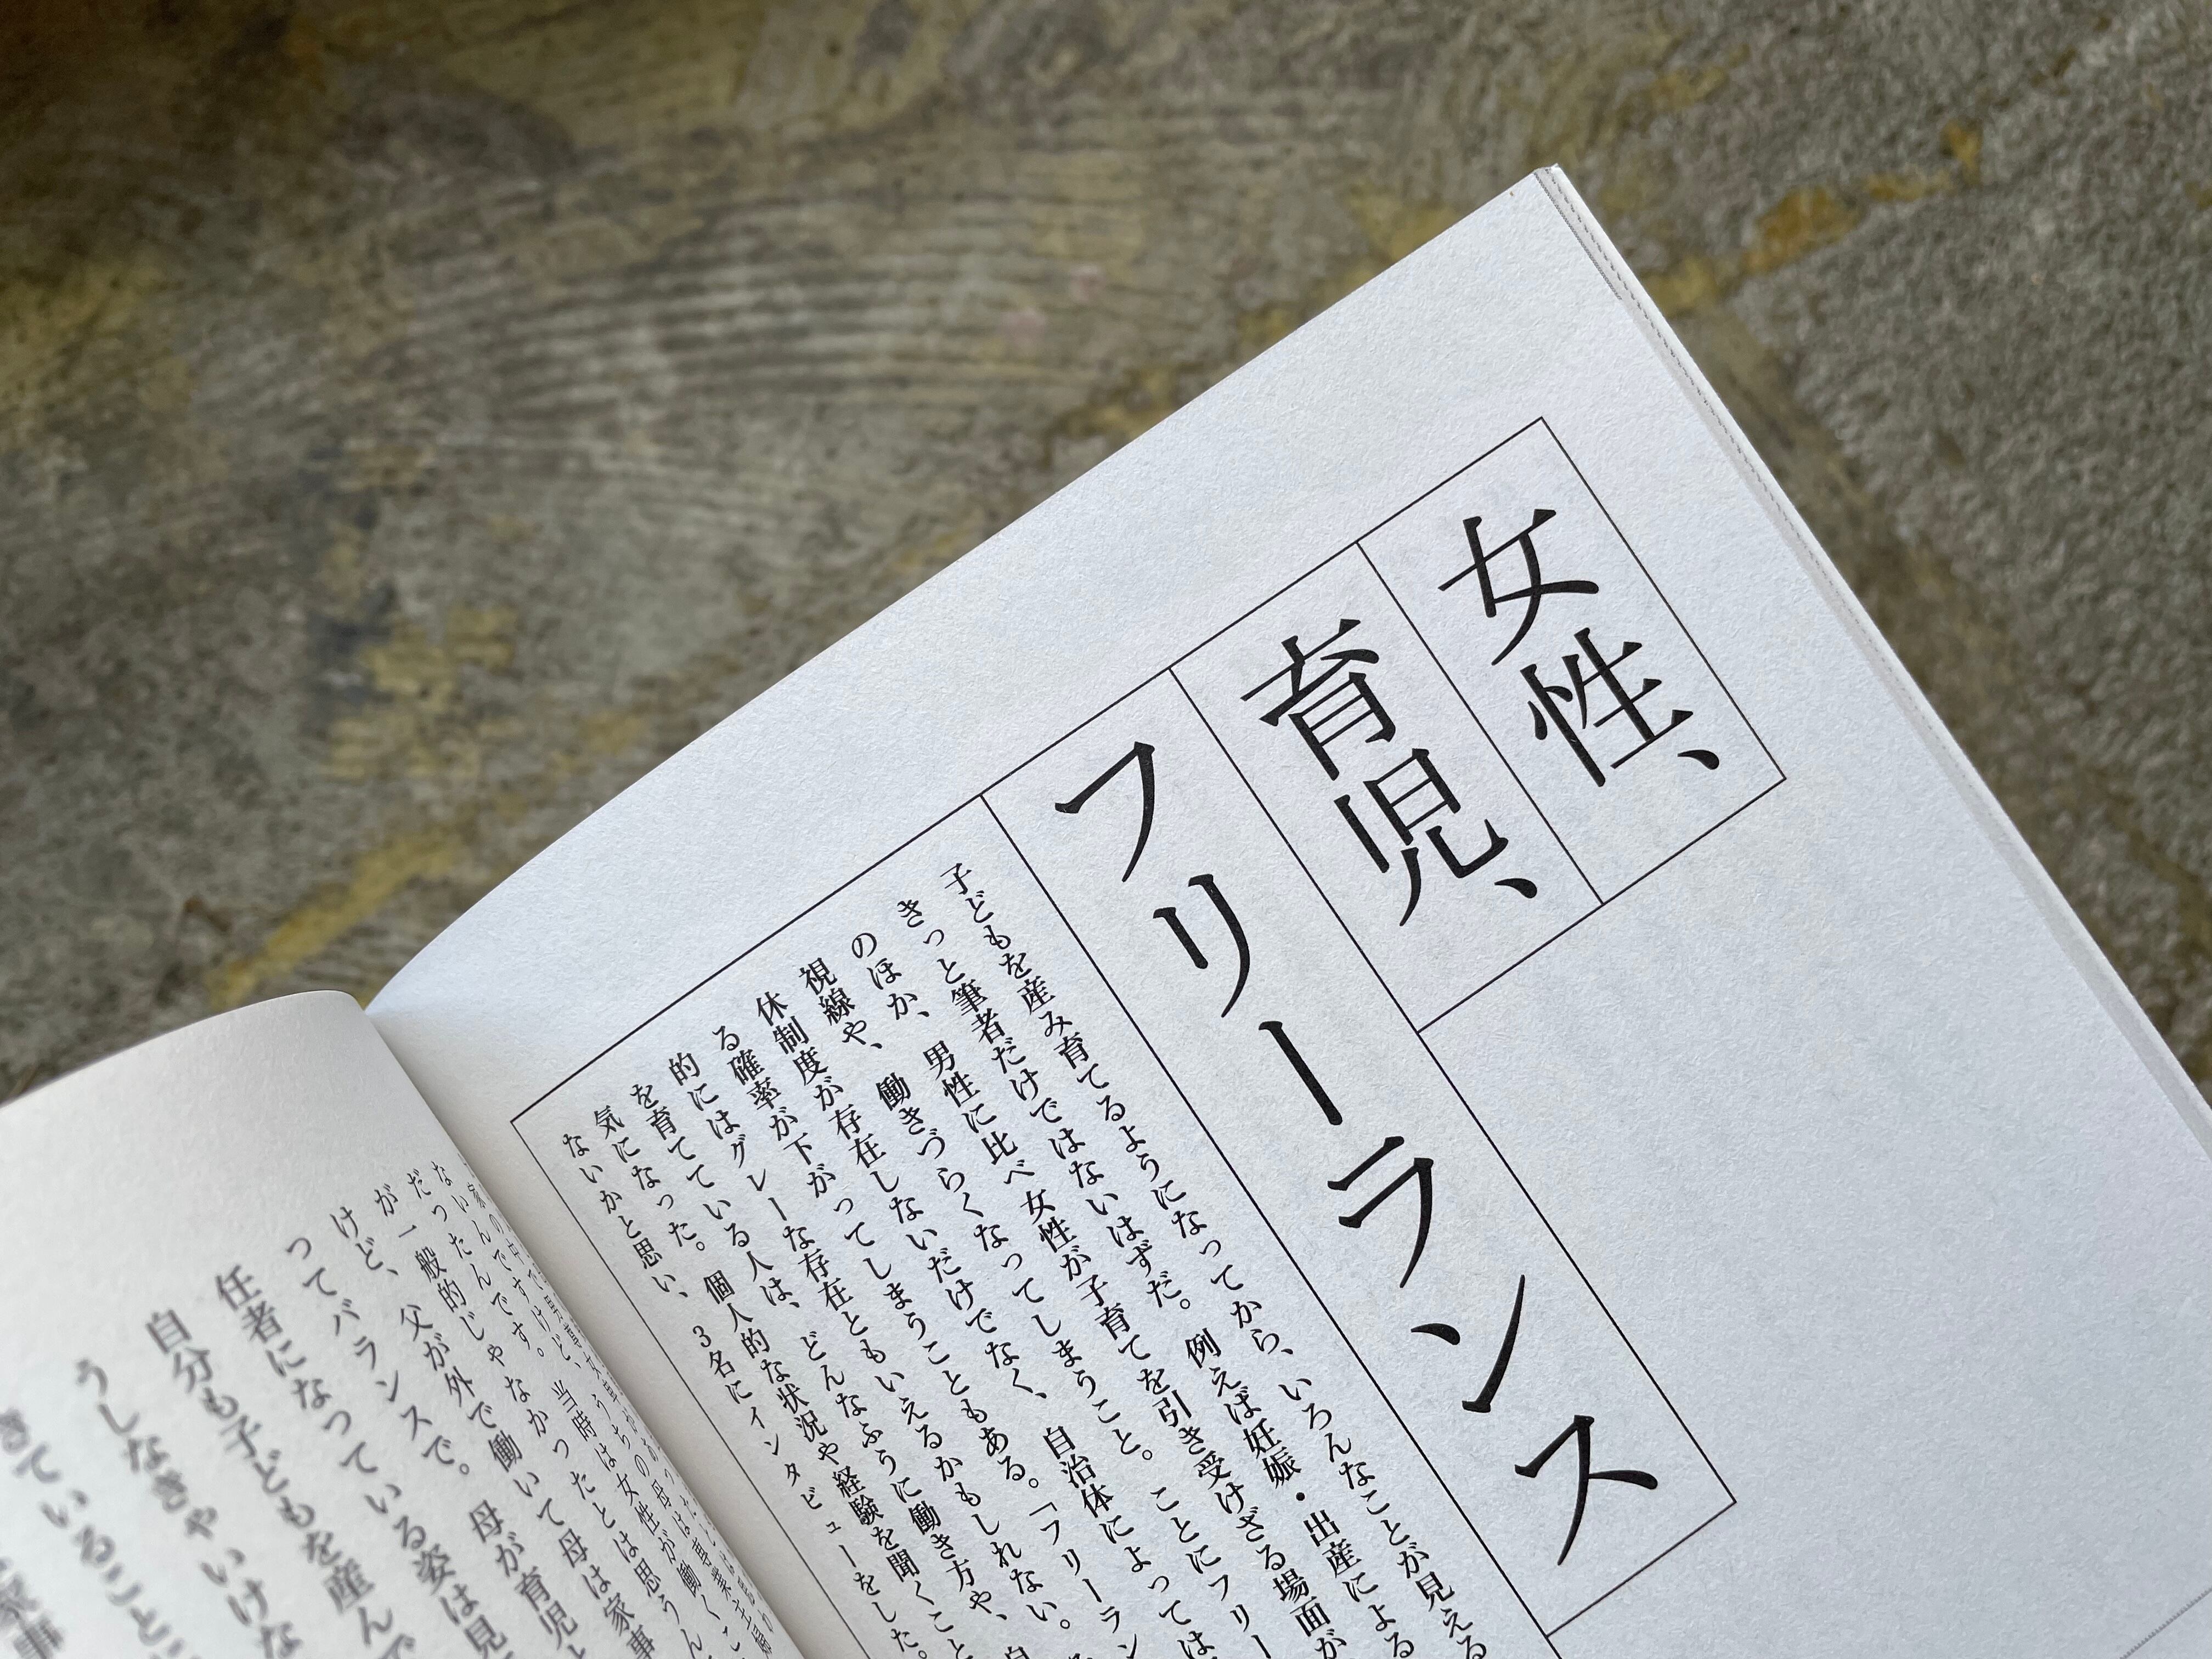 女性、
育児、
フリーランス
子どもを産み育てるようになってから、いろんなことが見える
きっと筆者だけではないはずだ。例えば妊娠・出産による
のほか、男性に比べ女性が子育てを引き受けざる場面が
視線や、働きづらくなってしまうこと。ことにフリー
休制度が存在しないだけでなく、自治体によっては
る確率が下がってしまうこともある。「フリーラン
的にはグレーな存在ともいえるかもしれない。
を育てている人は、どんなふうに働き方や、自
気になった。個人的な状況や経験を聞くこと
ないかと思い、3名にインタビューをした。
ないんですけど、当時は女性が働くこ
だったんです。うちの母は専業主婦
が一般的じゃなかったとは思うん
けど、父が外で働いて母は家事
ってバランスで。母が育児と
任者になっている姿は見
自分も子どもを産んで
うしなきゃいけな
きていることに
家事